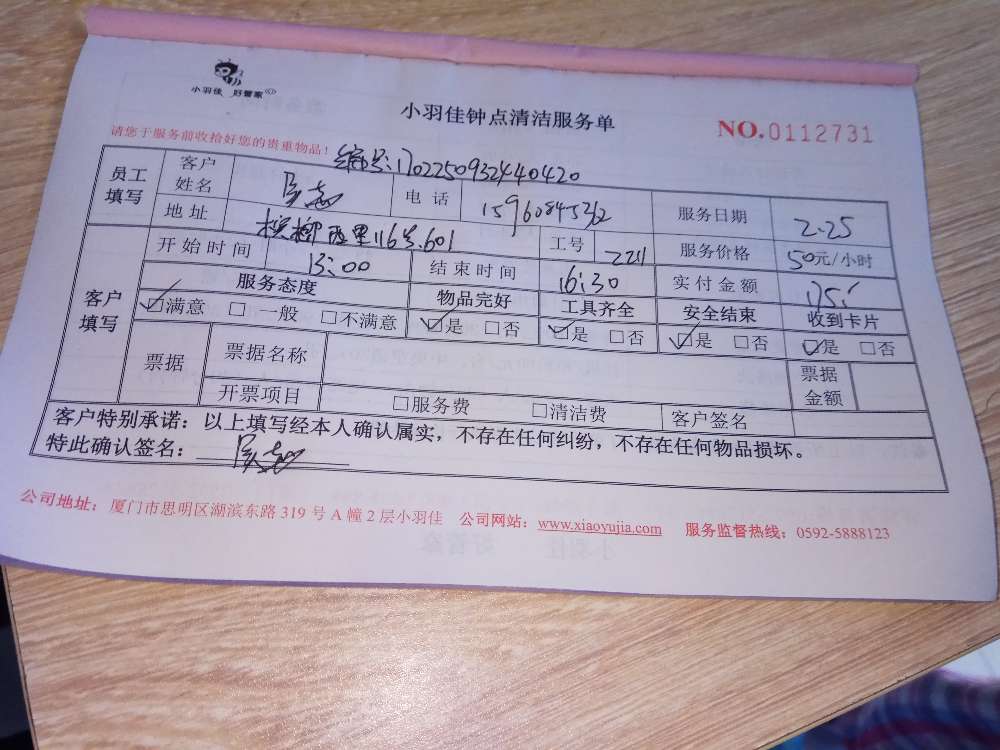 小羽佳 好管家
小羽佳钟点清洁服务单
NO.0112731
请您于服务前收拾好您的贵重物品！
编号:1702250932440420
员工填写 客户姓名 电话 服务日期 2.25
地址 槟榔西里116号601 工号 2211 服务价格 50元/小时
客户填写 开始时间 13:00 结束时间 16:30 实付金额 175
服务态度 物品完好 工具齐全 安全结束 收到卡片
☑满意 □一般 □不满意 ☑是 □否 ☑是 □否 ☑是 □否 ☑是 □否
票据 票据名称 票据金额
开票项目 □服务费 □清洁费 客户签名
客户特别承诺：以上填写经本人确认属实，不存在任何纠纷，不存在任何物品损坏。
特此确认签名：
公司地址：厦门市思明区湖滨东路 319 号 A 幢 2 层小羽佳 公司网站：www.xiaoyujia.com 服务监督热线：0592-5888123